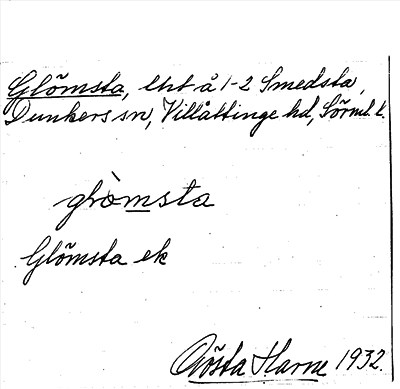 Glömsta, lht å 1-2 Smedsta,
Dunkers sn, Villåttinge hd, Sörml. l.
glòmsta
Glömsta ek
Gösta Harne 1932.